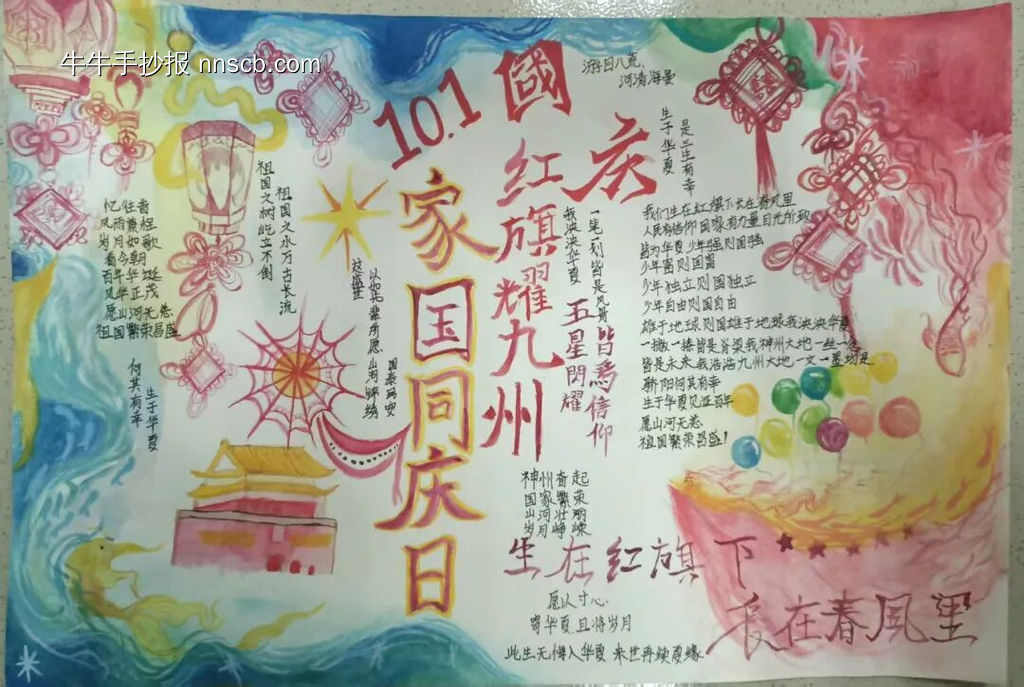 牛牛手抄报 nnscb.com
10.1
國庆
游目八荒
河清海晏
红旗耀九州
家国同庆日
生于华夏
是三生有幸
忆往昔
风雨兼程
岁月如歌
看今朝
百年华诞
风华正茂
愿山河无恙
祖国繁荣昌盛
祖国之树屹立不倒
祖国之水万古长流
这盛世
以如先辈所愿山河锦绣
国泰
何其有幸
生于华夏
我泱泱华夏
一笔一刻皆是风骨
五星閃耀
皆為信仰
我们生在红旗下长在春风里
人民有信仰国家有力量目光所致
皆为华夏少年强则国强
少年富则国富
少年独立则国独立
少年自由则国自由
雄于地球则国雄于地球我泱泱华夏
一撇一捺皆是脊梁我神州大地一丝一念
皆是未来我浩浩九州大地一文一墨均是
骄阳何其有幸
生于华夏见证百年
愿山河无恙
祖国繁荣昌盛!
神州奋起
国家繁荣
山河壮丽
岁月峥嵘
生在红旗下
长在春風里
愿以寸心
寄华夏且将岁月
此生无悔入华夏 来世再续夏缘